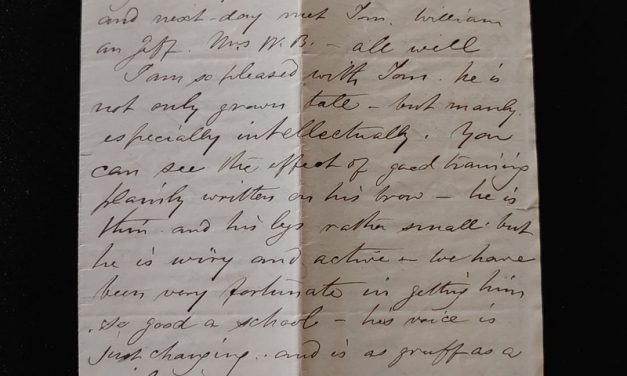 and next day met Tom. William
an Jeff. Mrs W. B. – all well
I am so pleased with Tom. he is
not only grown tall – but manly
especially intellectually. You
can see the effect of good training
plainly written on his brow – he is
thin and his legs rather small but
he is wiry and active – we have
been very fortunate in getting him
so good a school – his voice is
just changing. and is as gruff as a